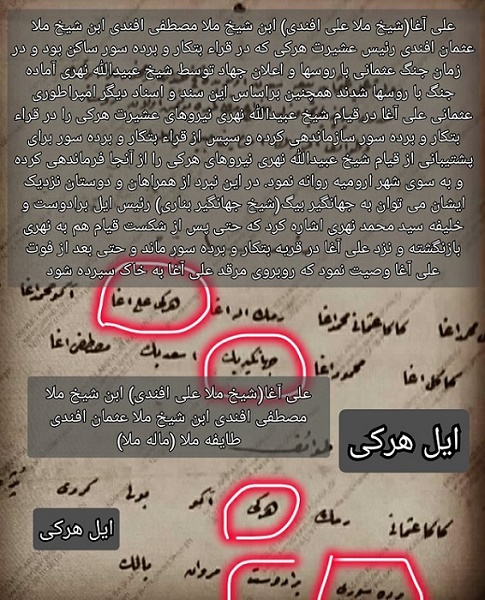 علی آغا(شیخ ملا علی افندی) ابن شیخ ملا مصطفی افندی ابن شیخ ملا
عثمان افندی رئیس عشیرت هرکی که در قراء بتکار و برده سور ساکن بود و در
زمان جنگ عثمانی با روسها و اعلان جهاد توسط شیخ عبیدالله نهری آماده
جنگ با روسها شدند همچنین براساس این سند و اسناد دیگر امپراطوری
عثمانی علی آغا در قیام شیخ عبیدالله نهری نیروهای عشیرت هرکی را در قراء
بتکار و برده سور سازماندهی کرده و سپس از قراء بتکار و برده سور برای
پشتیبانی از قیام شیخ عبیدالله نهری نیروهای هرکی را از آنجا فرماندهی کرده
و به سوی شهر ارومیه روانه نمود. در این نبرد از همراهان و دوستان نزدیک
ایشان می توان به جهانگیر بیگ(شیخ جهانگیر بناری) رئیس ایل برادوست و
خلیفه سید محمد نهری اشاره کرد که حتی پس از شکست قیام هم به نهری
بازنگشته و نزد علی آغا در قریه بتکار و برده سور ماند و حتی بعد از فوت
علی آغا وصیت نمود که روبروی مرقد علی آغا به خاک سپرده شود
هرکی علی اغا
کاکا عثمانی محمد اغا
جهانگیر بك اسعد بك مصطفی اغا
محمود اغا
علی آغا(شیخ ملا علی افندی) ابن شیخ ملا
مصطفی افندی ابن شیخ ملا عثمان افندی
طایفه ملا (ماله ملا)
ایل هرکی
کاکا عثمانی رمك هرکی اکو بوبا کردی
ایل هرکی
برادوست مروان بالك